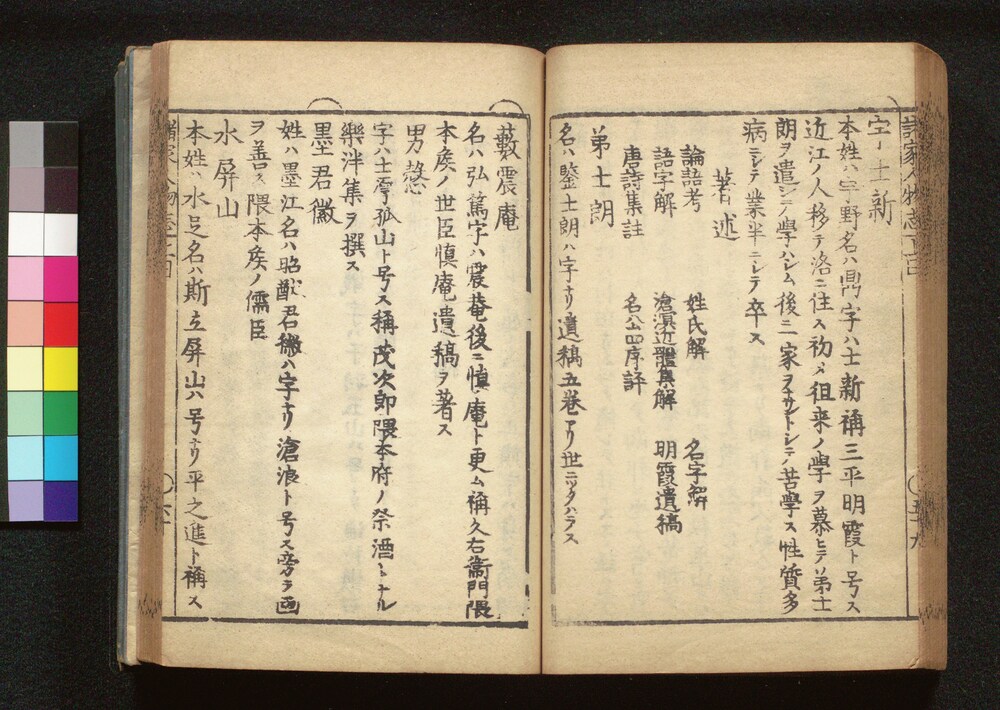 宇士新
本姓ハ宇野名ハ鼎字ハ士新稱三平明霞ト号ス
近江ノ人移テ洛ニ住ス初メ徂来ノ學ヲ慕ヒテ弟士
朗ヲ遣シテ學ハシム後ニ一家ヲナサントシテ苦學ス性質多
病ニシテ業半ニシテ卒ス
著述
論語考 姓氏解 名字解
語字解 滄溟近體集解 明霞遺稿
唐詩集註 名公四序評
弟士朗
名ハ鑒士朗ハ字ナリ遺稿五巻アリ世ニツタハラス
藪震庵
名ハ弘篤字ハ震菴後ニ慎庵ト更ム稱久右衞門隈
本矦ノ世臣慎庵遺稿ヲ著ス
男愨
字ハ士厚孤山ト号ス稱茂次郎隈本府ノ祭酒トナル
樂泮集ヲ撰ス
墨君徽
姓ハ墨江名ハ昭猷君徽ハ字ナリ滄浪ト号ス旁ラ画
ヲ善ス隈本矦ノ儒臣
水屏山
本姓ハ水足名ハ斯立屏山ハ号ナリ平之進ト稱ス